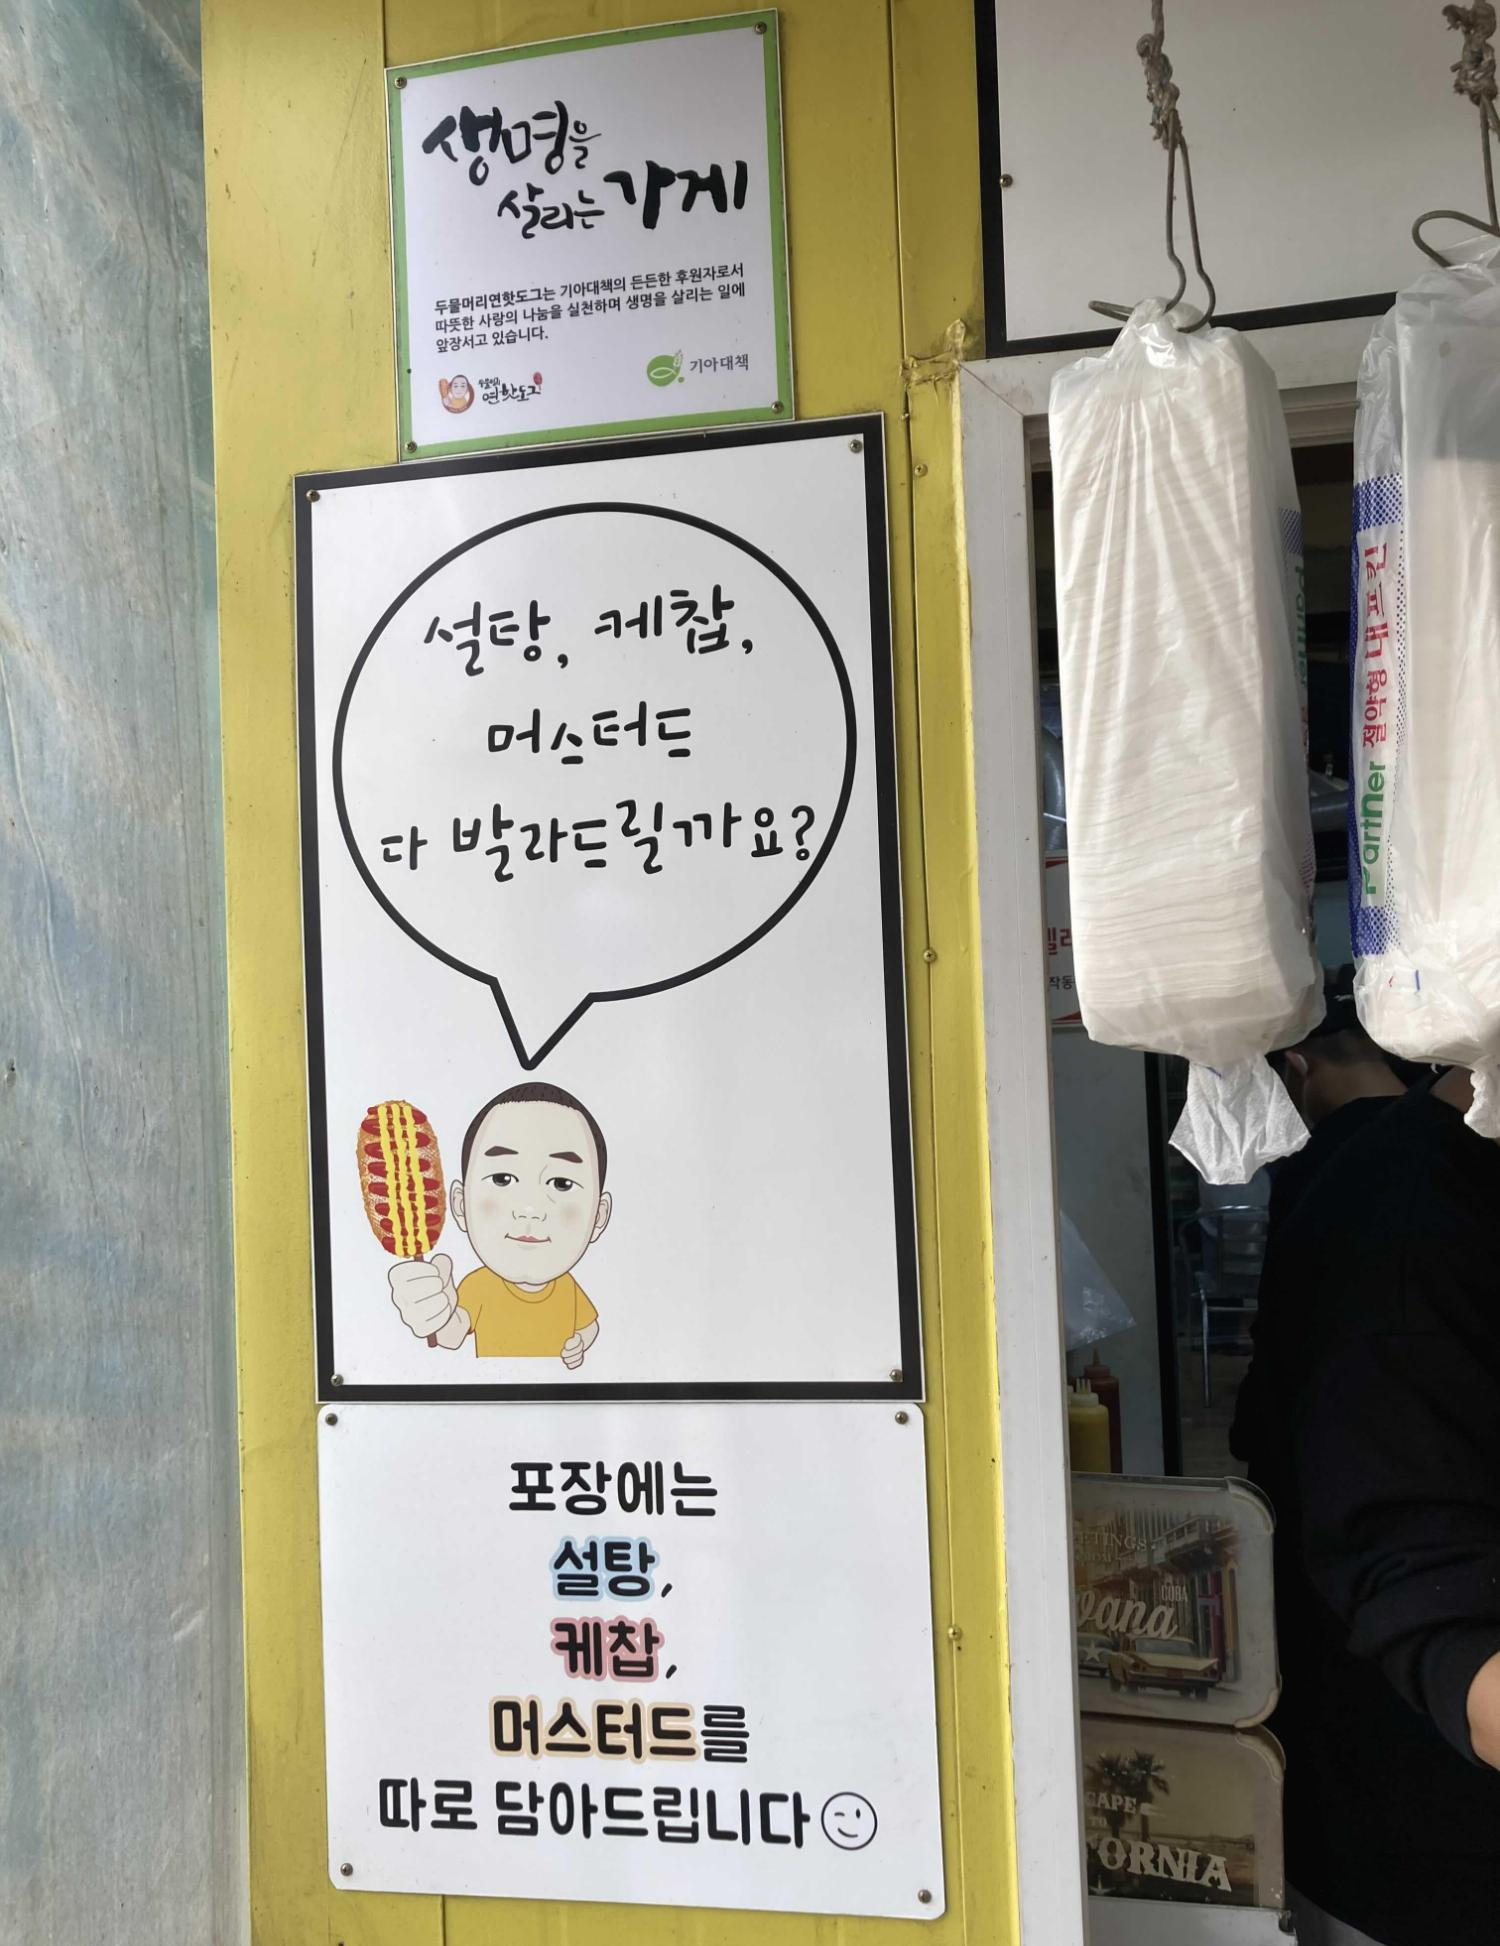 생명을
살리는 가게
두물머리연핫도그는 기아대책의 든든한 후원자로서
따뜻한 사랑의 나눔을 실천하며 생명을 살리는 일에
앞장서고 있습니다.
두물머리
연핫도그
기아대책
설탕, 케찹,
머스터드
다 발라드릴까요?
포장에는
설탕,
케찹,
머스터드를
따로 담아드립니다
Partner 절약형 내프킨
작동
CUBA
ORNIA